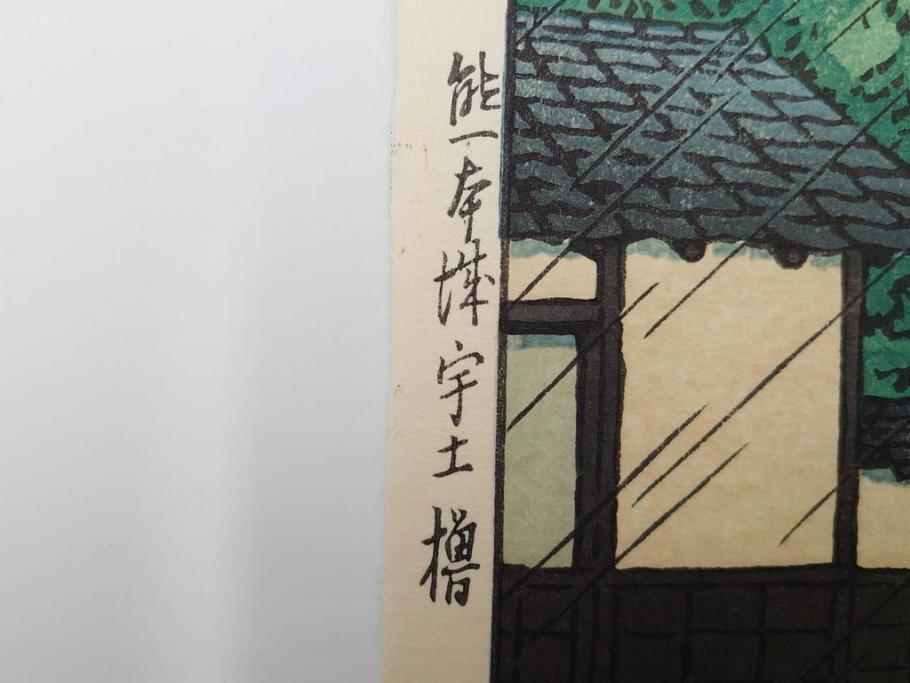 熊本城宇土櫓